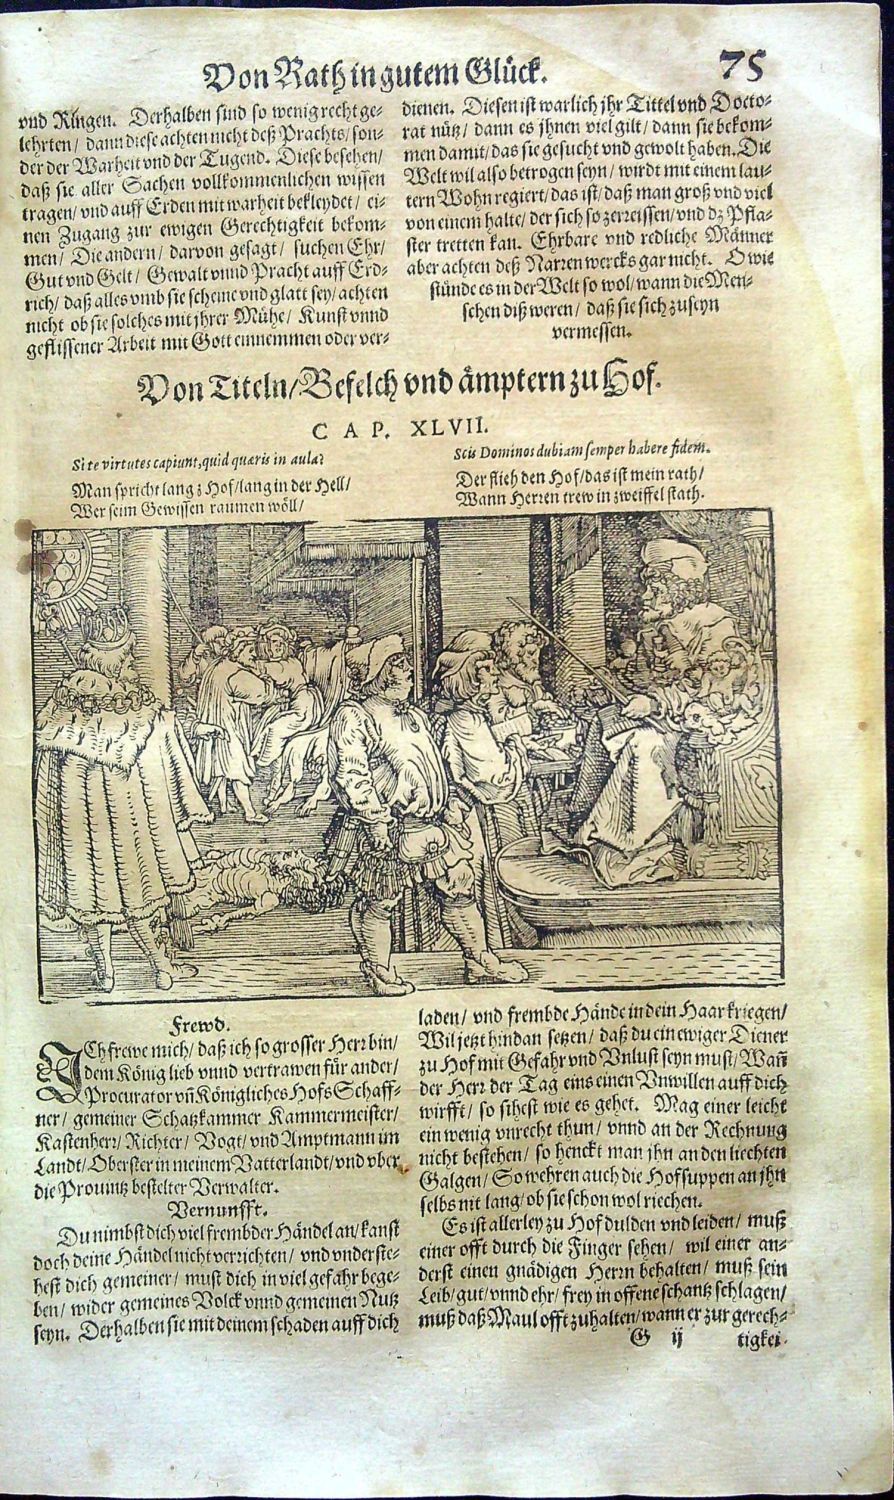 Von Rath in gutem Glück. 75
vnd Ringen. Derhalben sind so wenig recht ge-
lehrten/ dann diese achten nicht deß Prachts/ son-
der der Warheit vnd der Tugend. Diese besehen/
daß sie aller Sachen vollkommenlichen wissen
tragen/ vnd auff Erden mit warheit bekleydet/ ei-
nen Zugang zur ewigen Gerechtigkeit bekom-
men/ Die andern/ darvon gesagt/ suchen Ehr/
Gut vnd Gelt/ Gewalt vnnd Pracht auff Erd-
rich/ daß alles vmb sie scheine vnd glatt sey/ achten
nicht ob sie solches mit jhrer Mühe/ Kunst vnnd
geflissener Arbeit mit Gott einnemmen oder ver-
dienen. Diesen ist warlich jhr Tittel vnd Docto-
rat nütz/ dann es jhnen viel gilt/ dann sie bekom-
men damit/ das sie gesucht vnd gewolt haben. Die
Welt wil also betrogen seyn/ wirdt mit einem lau-
tern Wohn regiert/ das ist/ daß man groß vnd viel
von einem halte/ der sich so zerreissen/ vnd dz Pfla-
ster tretten kan. Ehrbare vnd redliche Männer
aber achten deß Narrenwercks gar nicht. O wie
stünde es in der Welt so wol/ wann die Men-
schen diß weren/ daß sie sich zuseyn
vermessen.
Von Titeln/ Befelch vnd ämptern zu Hof.
CAP. XLVII.
Si te virtutes capiunt, quid quæris in aula?
Man spricht lang z Hof/ lang in der Hell/
Wer seim Gewissen raumen wöll/
Scis Dominos dubiam semper habere fidem.
Der flieh den Hof/ das ist mein rath/
Wann Herren trew in zweiffel stath.
Frewd.
ICh frewe mich/ daß ich so grosser Herr bin/
dem König lieb vnnd vertrawen für ander/
Procurator vñ Königliches Hofs Schaff-
ner/ gemeiner Schatzkammer Kammermeister/
Kastenherr/ Richter/ Vogt/ vnd Amptmann im
Landt/ Oberster in meinem Vatterlandt/ vnd vber
die Prouintz bestelter Verwalter.
Vernunfft.
Du nimbst dich viel frembder Händel an/ kanst
doch deine Händel nicht verrichten/ vnd vnderste-
hest dich gemeiner/ must dich in viel gefahr bege-
ben/ wider gemeines Volck vnnd gemeinen Nutz
seyn. Derhalben sie mit deinem schaden auff dich
laden/ vnd frembde Hände in dein Haar kriegen/
Wil jetzt hindan setzen/ daß du ein ewiger Diener
zu Hof mit Gefahr vnd Vnlust seyn must/ Wañ
der Herr der Tag eins einen Vnwillen auff dich
wirfft/ so sihest wie es gehet. Mag einer leicht
ein wenig vnrecht thun/ vnnd an der Rechnung
nicht bestehen/ so henckt man jhn an den liechten
Galgen/ So wehren auch die Hofsuppen an jhn
selbs nit lang/ ob sie schon wol riechen.
Es ist allerley zu Hof dulden vnd leiden/ muß
einer offt durch die Finger sehen/ wil einer an-
derst einen gnädigen Herrn behalten/ muß sein
Leib/ gut/ vnnd ehr/ frey in offene schantz schlagen/
muß daß Maul offt zuhalten/ wann er zur gerech-
G ij tigkei-